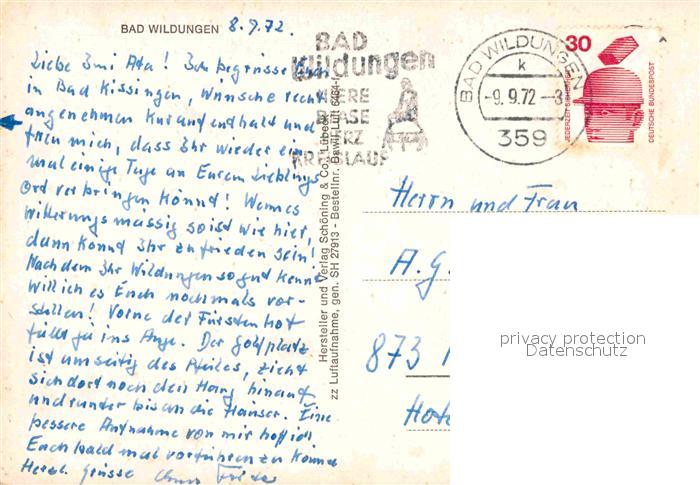 BAD WILDUNGEN 8.9.72.
Liebe Emi Ata! Ich begrüsse Euch
in Bad Kissingen, wünsche recht
angenehmen Kuraufenthalt und
freu mich, dass Ihr wieder ein-
mal einige Tage an Eurem Lieblings
Ort verbringen könnt! Wenn es
witterungsmässig so ist wie hier,
dann könnt Ihr zufrieden sein!
Nachdem Ihr Wildungen so gut kennt
will ich es Euch nochmals vor-
stellen! Vorne der Fürstenhof
fällt ja ins Auge. Der Golfplatz
ist umseitig des Pfeiles, zieht
sich dort noch den Hang hinauf
und runter bis an die Häuser. Eine
bessere Aufnahme von mir hoff ich
Euch bald mal vorführen zu können
Herzl. Grüsse
BAD
Wildungen
NIERE
BLASE
HERZ
KREISLAUF
BAD WILDUNGEN
k
-9.9.72-
359
30
JEDERZEIT SICHERHEIT
DEUTSCHE BUNDESPOST
Hersteller und Verlag Schöning & Co., Lübeck
zz Luftaufnahme, gen. SH 27913 - Bestellnr. BawiH Luft 6464
Herrn und Frau
A. G.
873
Hote
privacy protection
Datenschutz